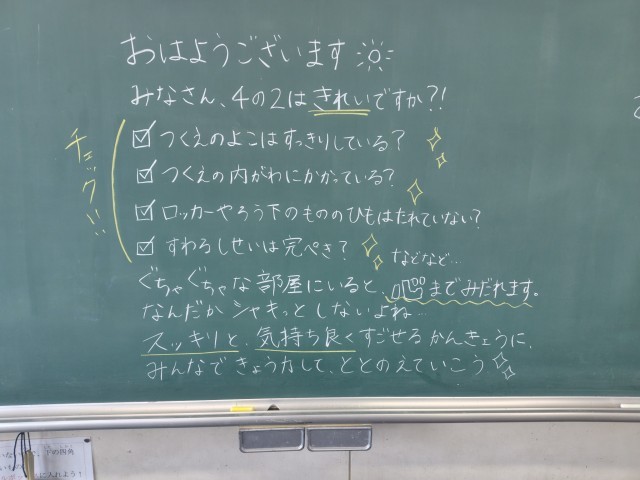 おはようございます
みなさん、4の2はきれいですか?!
チェック!!
☑ つくえのよこはすっきりしている?
☑ つくえの内がわにかかっている?
☑ ロッカーやろう下のもののひもはたれていない?
☑ すわるしせいは完ぺき?
などなど…
ぐちゃぐちゃな部屋にいると、心までみだれます。
なんだかシャキっとしないよね…
スッキリと、気持ち良くすごせるかんきょうに、
みんなできょう力して、ととのえていこう